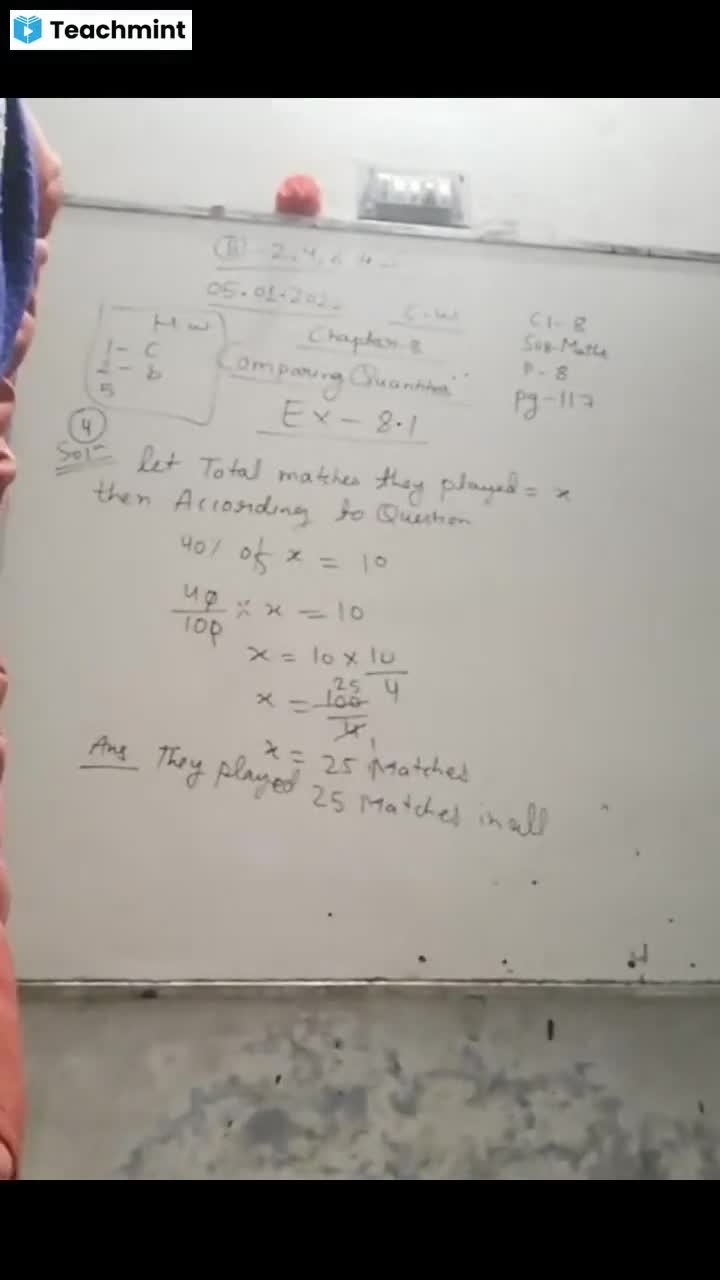 Teachmint
05.01.202
C.W
Cl- 8
Sub-Maths
P - 8
Pg-117
H.W
1- C
2- b
5
Chapter-8
Comparing Quantities
Ex - 8.1
4
Soln
let Total matches they played = x
then According to Question
40% of x = 10
40/100 × x = 10
x = 10 × 10/4
25
x = 100/4
1
x = 25 Matches
Ans They played 25 Matches in all